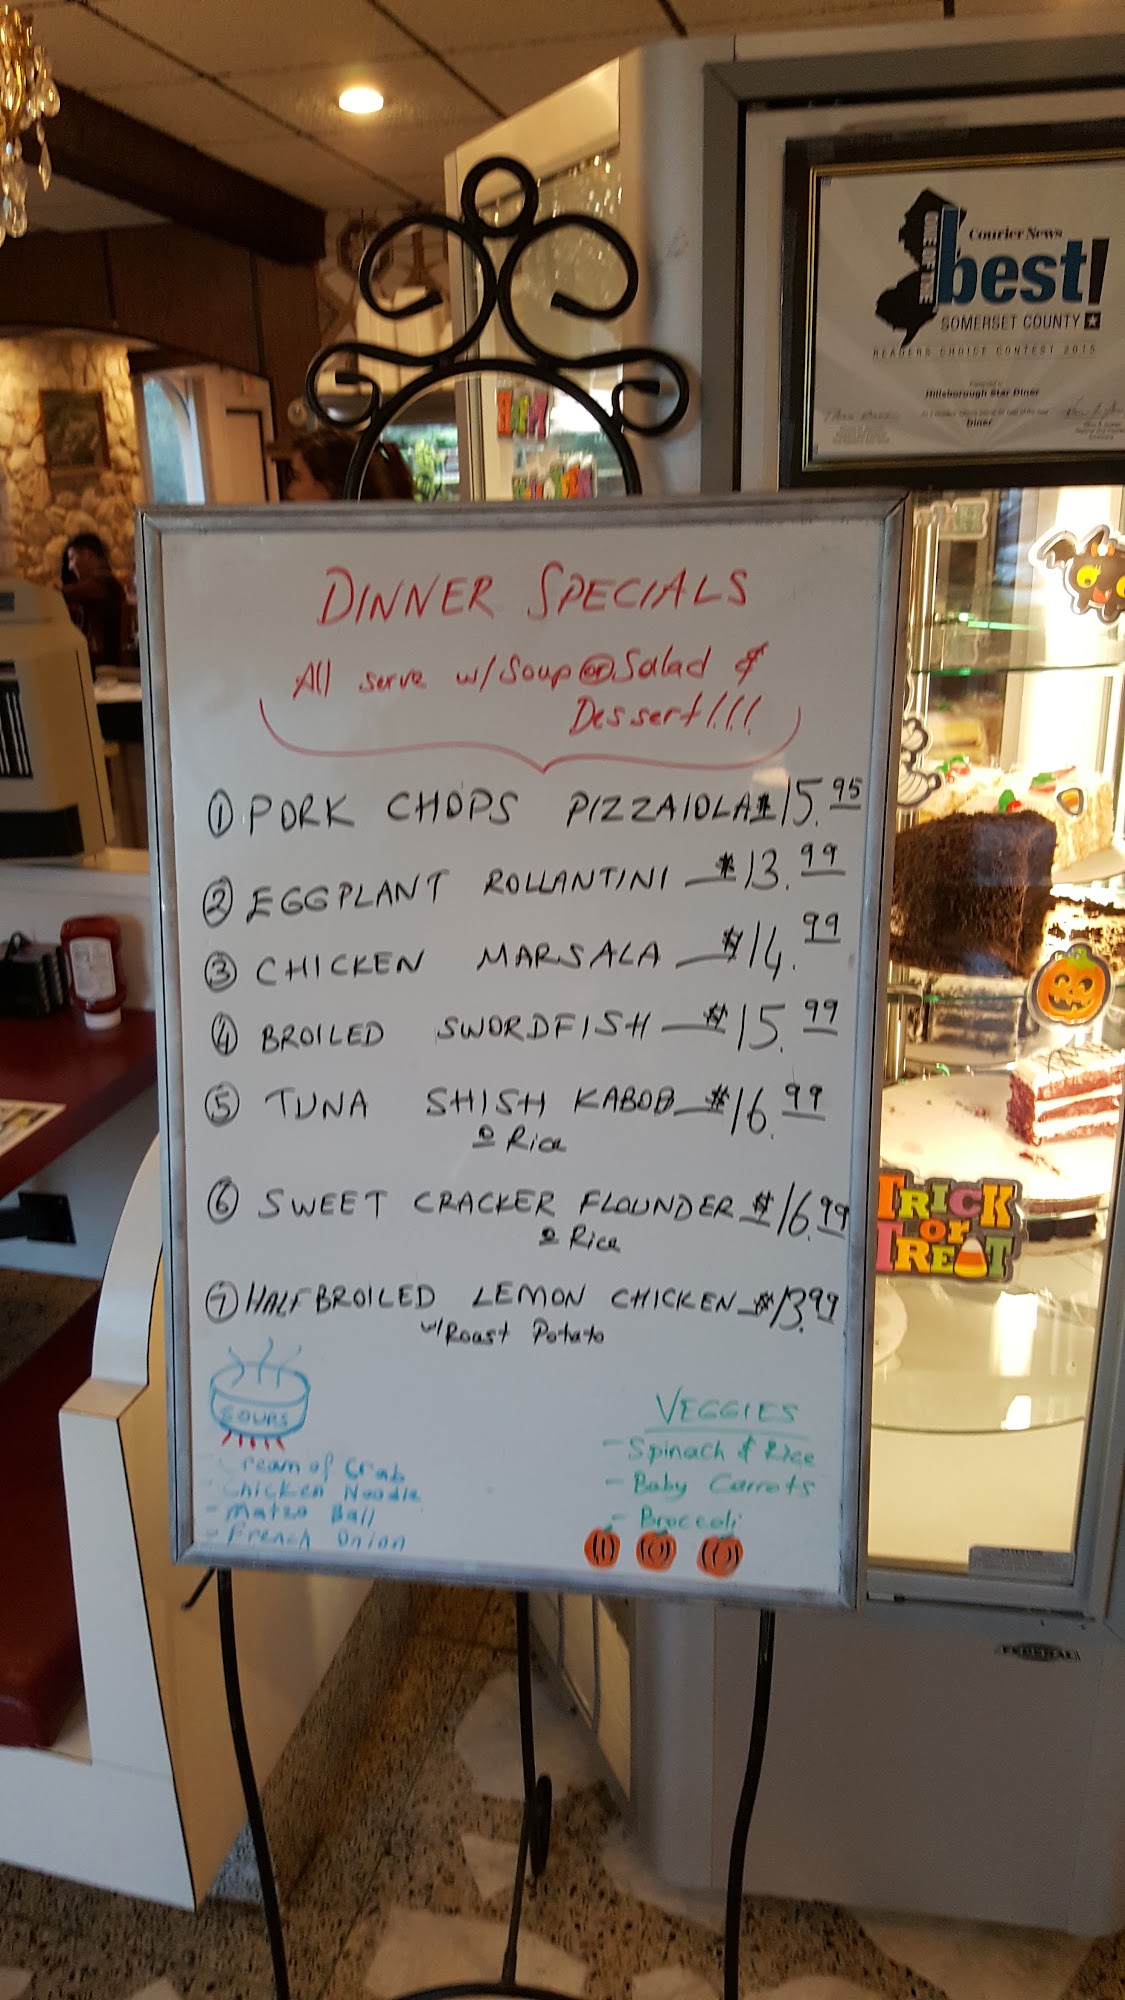 Courier News
ONE OF THE
best!
SOMERSET COUNTY
READERS CHOICE CONTEST 2015
Hillsborough Star Diner
Diner
DINNER SPECIALS
All serve w/Soup or Salad &
Dessert!!!!
1 PORK CHOPS PIZZAIOLA $15.95
2 EGGPLANT ROLLANTINI — $13.99
3 CHICKEN MARSALA — $14.99
4 BROILED SWORDFISH — $15.99
5 TUNA SHISH KABOB — $16.99
Rice
6 SWEET CRACKER FLOUNDER $16.99
Rice
7 HALF BROILED LEMON CHICKEN — $13.99
w/Roast Potato
SOUPS
- Cream of Crab
- Chicken Noodle
- Matzo Ball
- French Onion
VEGGIES
- Spinach & Rice
- Baby Carrots
- Broccoli
TRICK
or
TREAT
FEDERAL